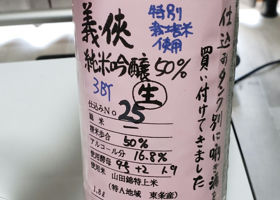 仕込のタンク別に唎き酒を
買い付けてきました
特別
栽培米
使用
義侠
純米吟醸50%
3BY
生
仕込みNo 25
麹歩合
精米歩合 50%
アルコール分 16.8%
使用米 山田錦特上米
(特A地域 東条産)
1.8ℓ